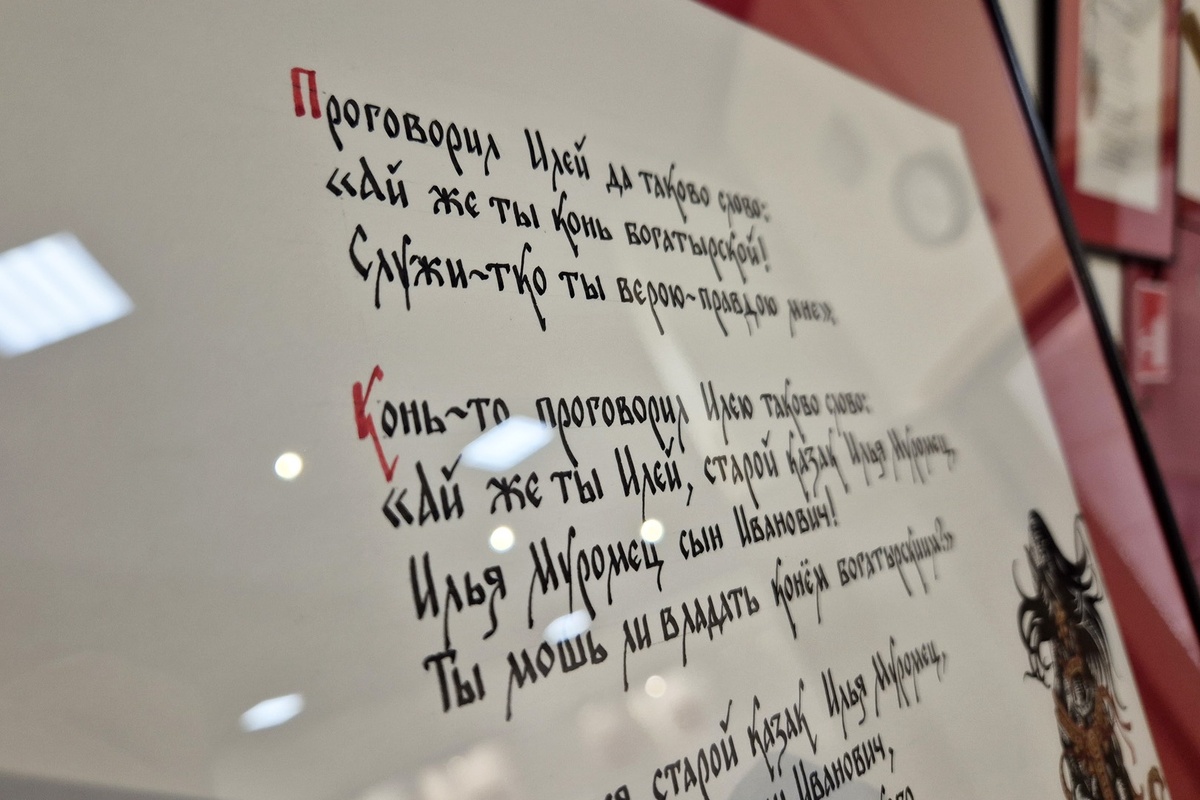 Проговорил Илей да таково слово:
«Ай же ты конь богатырской!
Служи~тко ты верою~правдою мне»;
Конь~то проговорил Илею таково слово:
«Ай же ты Илей, старой казак Илья Муромец,
Илья Муромец сын Иванович!
Ты мошь ли владать конём богатырскиим?»
старой казак Илья Муромец,
Иванович,